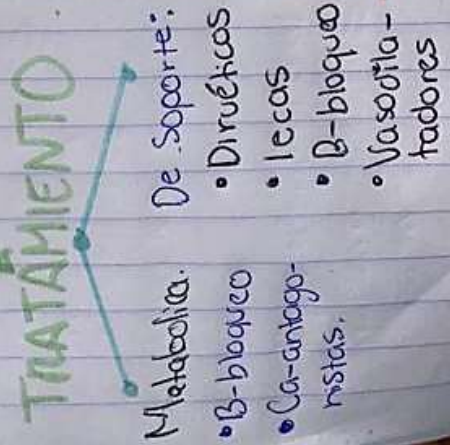 TRATAMIENTO
Metabolica.
•B-bloqueo
•Ca-antago-
nistas.
De soporte:
•Diruéticos
•Iecas
•B-bloqueo
•Vasodila-
tadores